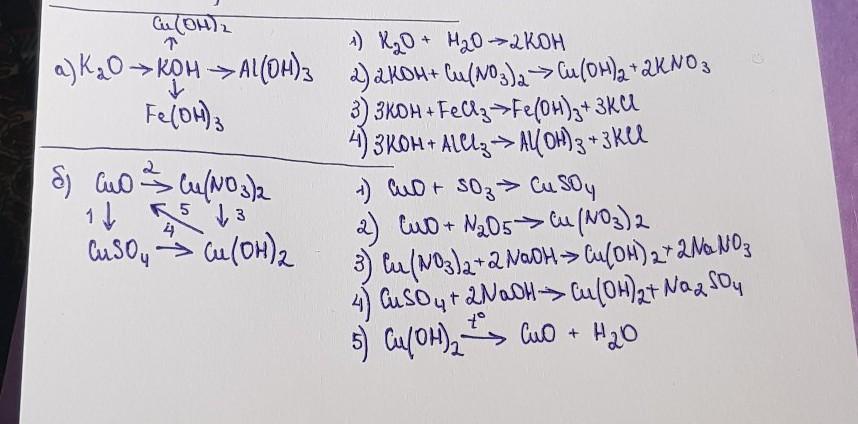 Cu(OH)₂
↑
а) K₂O → KOH → Al(OH)₃
↓
Fe(OH)₃
1) K₂O + H₂O → 2KOH
2) 2KOH + Cu(NO₃)₂ → Cu(OH)₂ + 2KNO₃
3) 3KOH + FeCl₃ → Fe(OH)₃ + 3KCl
4) 3KOH + AlCl₃ → Al(OH)₃ + 3KCl
б) CuO 2→ Cu(NO₃)₂
1↓ 5↖ ↓3
CuSO₄ 4→ Cu(OH)₂
1) CuO + SO₃ → CuSO₄
2) CuO + N₂O₅ → Cu(NO₃)₂
3) Cu(NO₃)₂ + 2NaOH → Cu(OH)₂ + 2NaNO₃
4) CuSO₄ + 2NaOH → Cu(OH)₂ + Na₂SO₄
5) Cu(OH)₂ t°→ CuO + H₂O